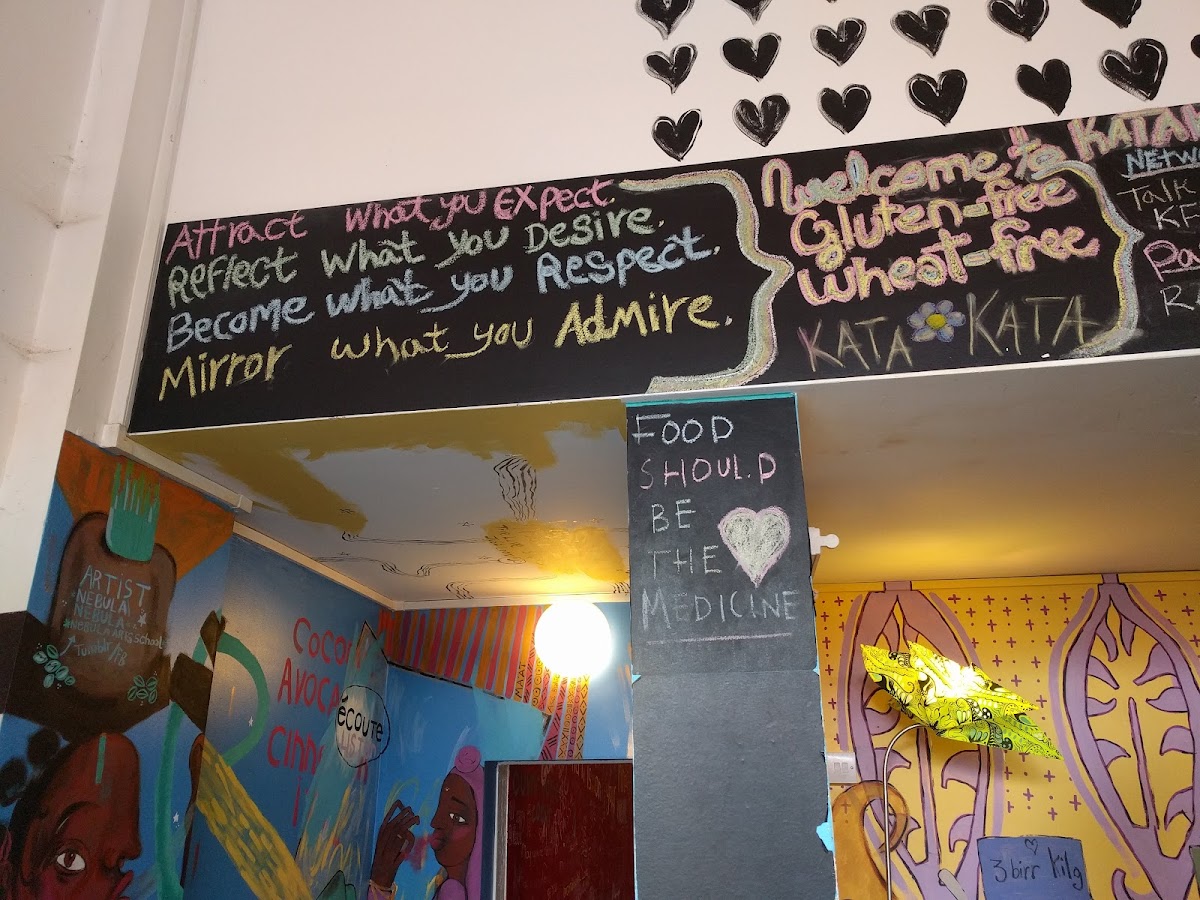 Attract What you Expect.
Reflect What you Desire.
Become what you Respect.
Mirror what you Admire.
Welcome to
Gluten-free
Wheat-free
KATA KATA
NETW
Talk
KF
FOOD
SHOULD
BE
THE
MEDICINE
ARTIST
NEBULA
NEBULA
Tumblr
COCO
AVOCA
CINN
écoute
MAAT
3 birr